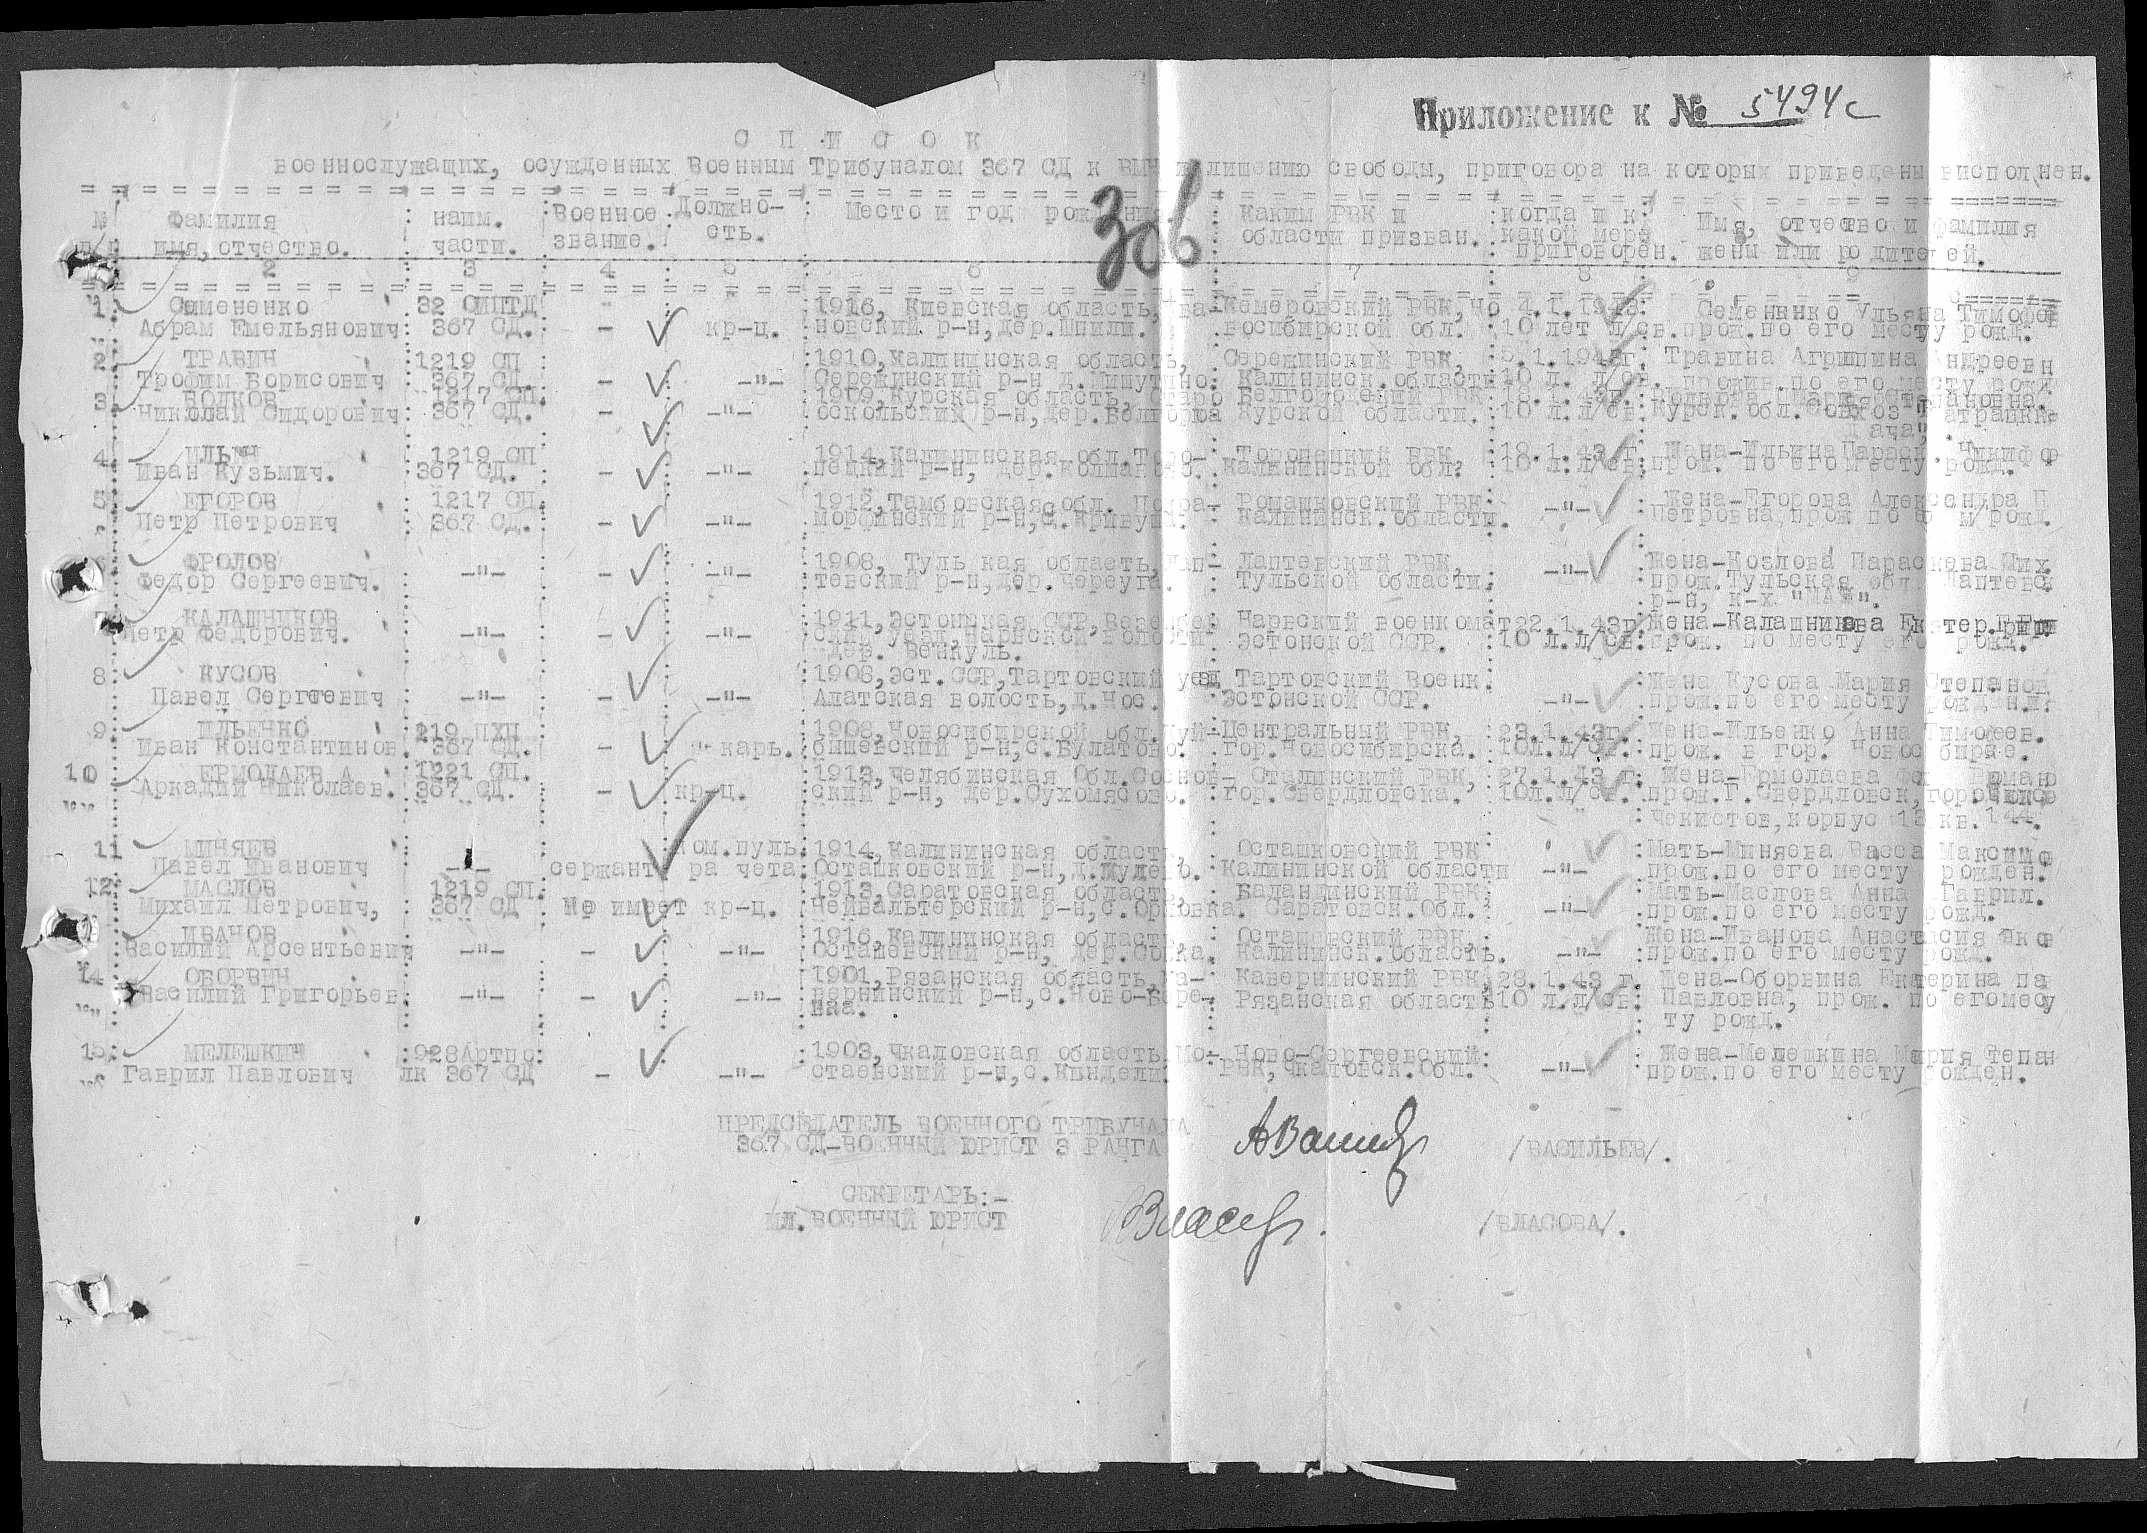 Приложение к № 5494с
С П И С О К
военнослужащих, осужденных Военным Трибуналом 367 СД к ВМН и лишению свободы, приговора на которых приведены висполнен.
306
№ п/п Фамилия имя, отчество. наим. части. Военное звание. Должно- сть. Место и год рождения Каким РВК и области призван. когда и к какой мере приговорен. Имя, отчество и фамилия жены или родителей.
2 3 4 5 6 7 8 9
1. Семененко 32 1916, Киевская область, Кемеровский РВК, но 4.1.1943. Семененко Ульяна Тимофе
Абрам Емельянович 367 СД. - кр-ц. новский р-н, дер.Шпили. восибирской обл. 10 лет л/св. прож.по его месту рожд.
2. ТРАВИН 1219 СП 1910, Калининская область, Сережинский РВК, 5.1.1943г. Травина Агрипина Андреевн
Трофим Борисович 367 СД. - -"- Сережинский р-н д.Мишутино. Калининск.области 10 л. л/св. прожив.по его месту рожд
3. ВОЛКОВ 1217 СП. 1909, Курская область, Старо Белгородский РВК
Николай Сидорович 367 СД. - -"- оскольский р-н, дер. Курской области. 10 л.л/св Курск.обл.
Дача".
4. ИЛЬИН 1219 СП 1914, Калининская обл.Торо- Торопецкий РВК, 18.1.43 г. Жена-Ильина Параск. Никифор
Иван Кузьмич. 367 СД. - -"- пецкий р-н, дер. Калининской обл. 10 л.л/св. прож. по его месту рожд.
5. ЕГОРОВ 1217 СП. 1912, Тамбовская обл. Ромашковский РВК -"- Жена-Егорова Александра П
Петр Петрович 367 СД. - -"- морфинский р-н, с.Кривуши. Калининск.области. Петровна, прож по м/рожд.
ФРОЛОВ 1908, Туль кая область, Лап- Лаптевский РВК, -"- Жена-Козлова Параскева Мих.
Федор Сергеевич. -"- - -"- тевский р-н, дер. Череуга. Тульской области. прож.Тульская обл. Лаптевс.
р-н, к-х "МАЯ".
КАЛАШНИКОВ 1911, Эстонская ССР, Нарвский военкомат 22.1.43г. Жена-Калашникова Екатер.Григ
Петр Федорович. -"- - -"- ский уезд, Нарвской волости Эстонской ССР. 10 л.л/св. прож. по месту его рожд.
дер. Венкуль.
8. КУСОВ 1908, Эст.ССР, Тартовский уезд Тартовский Военк. Жена Кусова Мария Степанод
Павел Сергеевич -"- - -"- Алатская волость, д.Нос. Эстонской ССР. -"- прож.по его месту рожден.
9. ИЛЬЕНКО 219 ПХП 1908, Новосибирской обл.Куй- Центральный РВК, 23.1.43г. Жена-Ильенко Анна Тимофеев.
Иван Константинов. 367 СД. - пекарь. бишевский р-н, с.Булатово. гор.Новосибирска. 10л.л/св. прож. в гор. Новосибирке.
10 ЕРМОЛАЕВ А 1221 СП. 1913, Челябинская Обл.Соснов- Сталинский РВК, 27.1.43 г. Жена-Ермолаева Роман
Аркадий Николаев. 367 СД. - кр-ц. ский р-н, дер.Сухомясово. гор.Свердловска. 10л.л/св. прож.Г.Свердловск, городок
чекистов, корпус 12 кв.144.
11 МИНЯЕВ ком.пуль. 1914, Калининская область, Осташковский РВК Мать-Миняева Васса Максимо
Павел Иванович -"- сержант ра чета. Осташковский р-н, д.Жулево. Калининской области -"- прож.по его месту рожден.
12. МАСЛОВ 1219 СП. 1913, Саратовская область, Баландинский РВК, Мать-Маслова Анна Гаврил.
Михаил Петрович, 367 СД Не имеет кр-ц. Нейвальтерский р-н, с.Орловка. Саратовск.Обл. -"- прож.по его месту рожд.
ИВАНОВ 1916, Калининская область, Осташевский РВК, Жена-Иванова Анастасия Яков
Василий Арсентьевич -"- - -"- Осташевский р-н, дер. Калининск.Область. -"- прож.по его месту рожд.
14 ОБОРВИН 1901, Рязанская область, Ка- Кавернинский РВК, 28.1.43 г. Жена-Оборвина Екатерина па
Василий Григорьев. -"- - -"- вернинский р-н, с.Ново-Бере- Рязанская область 10 л.л/св. Павловна, прож. по егомесу
ту рожд.
15. МЕЛЕШКИН 928Артпо 1903, Чкаловская область Мо- Ново-Сергеевский Жена-Мелешкина Мария Степан
Гаврил Павлович лк 367 СД - -"- стаевский р-н, с.Кындели. РВК, Чкаловск.Обл. -"- прож.по его месту рожден.
ПРЕДСЕДАТЕЛЬ ВОЕННОГО ТРИБУНАЛА
367 СД-ВОЕННЫЙ ЮРИСТ 3 РАНГА /ВАСИЛЬЕВ/.
СЕКРЕТАРЬ:-
МЛ. ВОЕННЫЙ ЮРИСТ /ВЛАСОВА/.